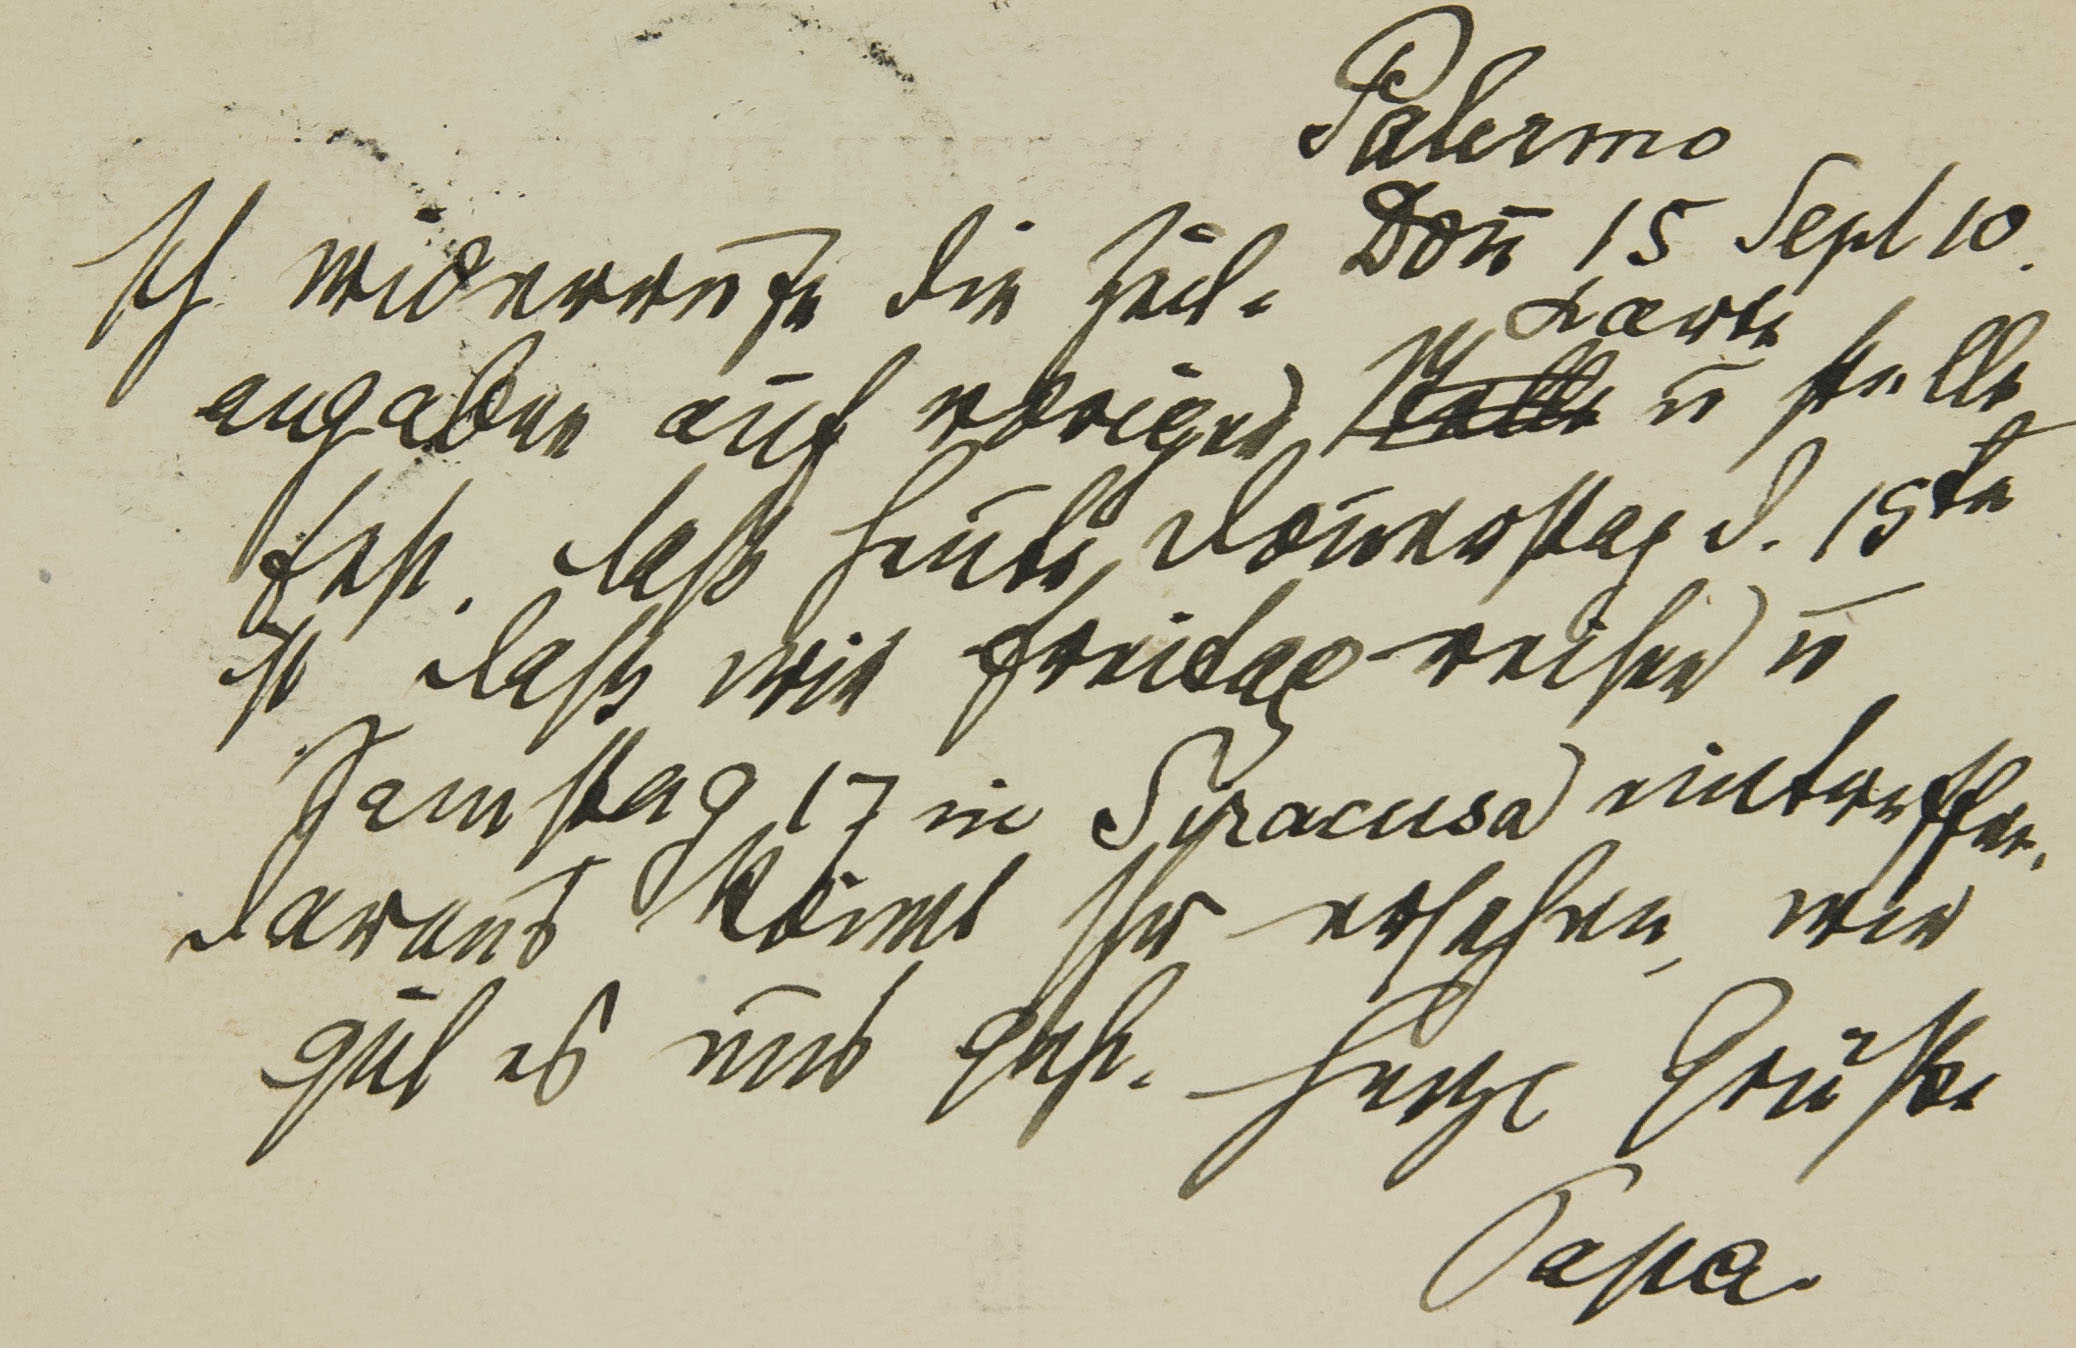 Palermo
Don̄ 15 Sept 10.
Ich widerrufe die Zeit-
angaben auf voriger Karte u stelle
fest, daß heute Donnerstag d. 15te
ist daß wir Freitag reisen u
Samstag 17 in Siracusa eintreffen.
daraus könnt Ihr ersehen, wie
gut es uns geht. Herzl Grüße
Papa